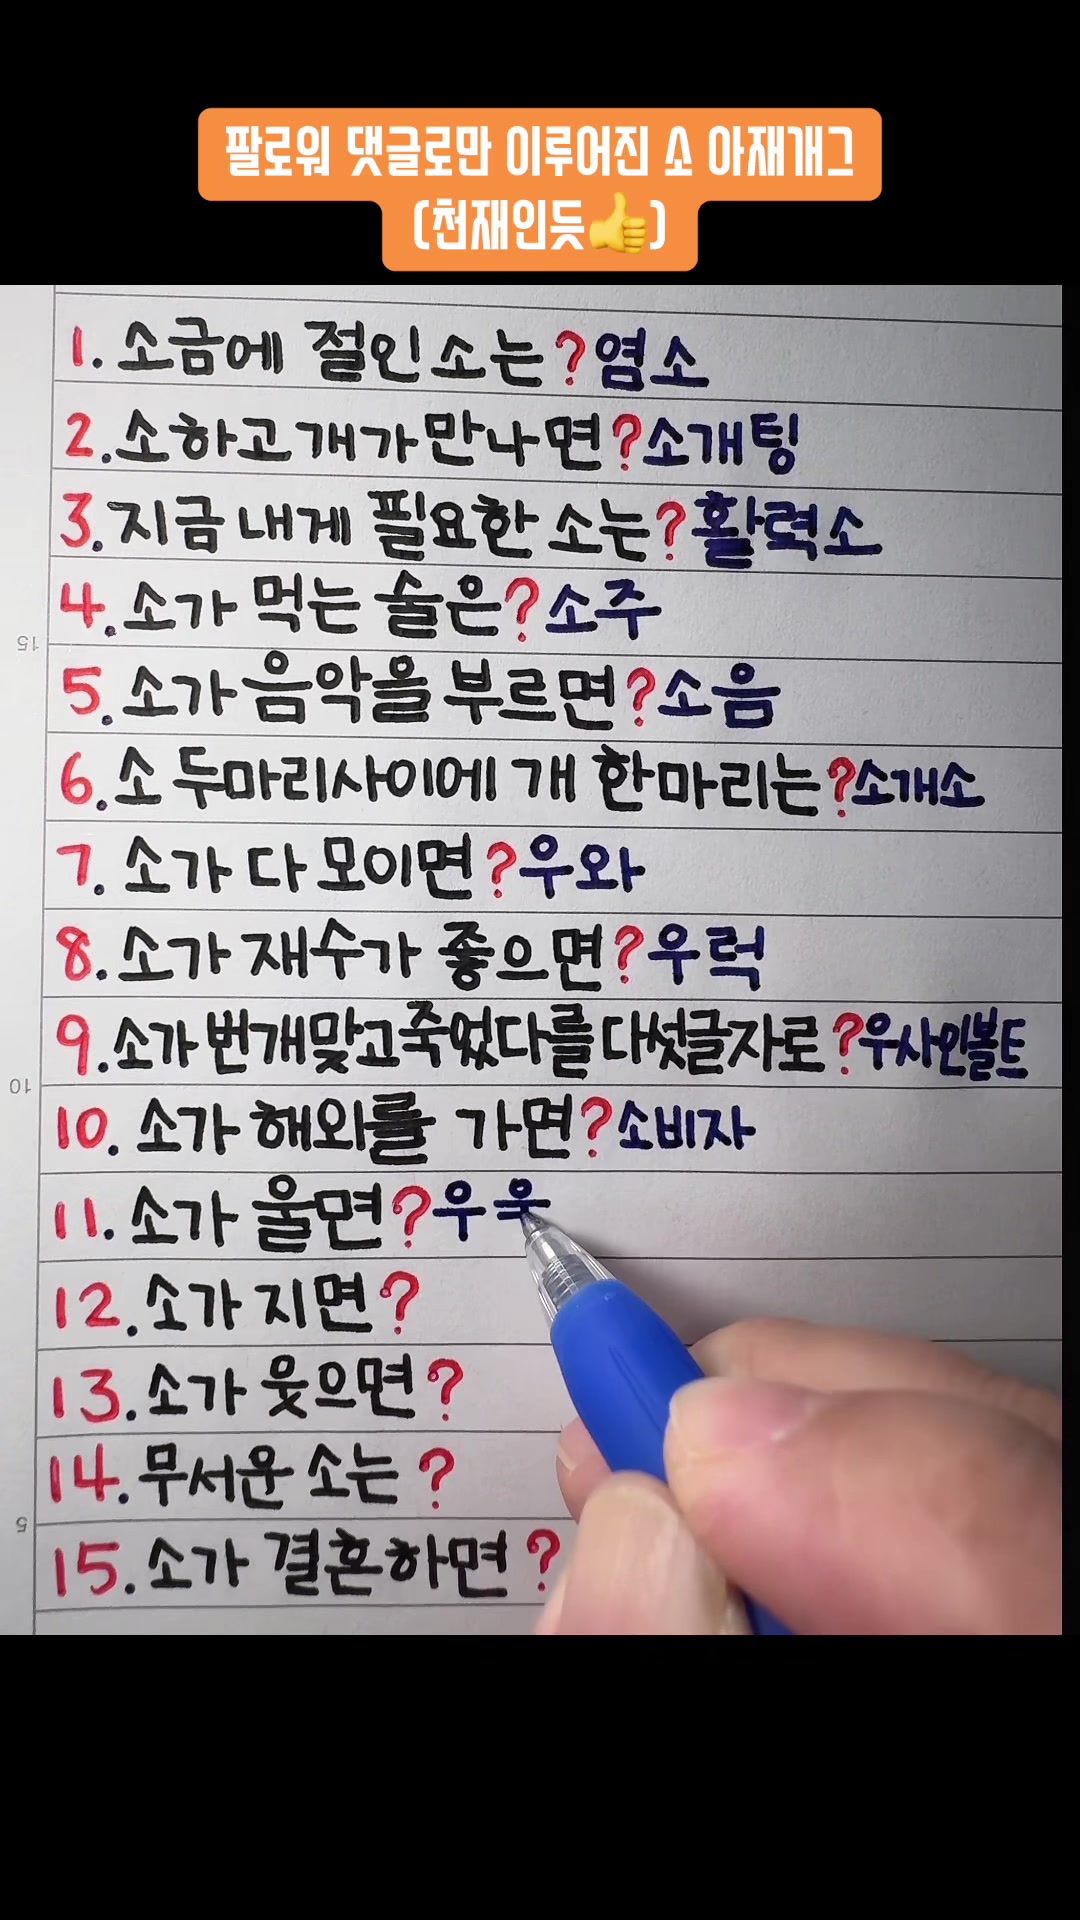 팔로워 댓글로만 이루어진 소 아재개그
(천재인듯👍)
1. 소금에 절인 소는? 염소
2. 소하고 개가 만나면? 소개팅
3. 지금 내게 필요한 소는? 활력소
4. 소가 먹는 술은? 소주
15
5. 소가 음악을 부르면? 소음
6. 소 두마리사이에 개 한마리는? 소개소
7. 소가 다 모이면? 우와
8. 소가 재수가 좋으면? 우럭
9. 소가 번개맞고죽었다를 다섯글자로? 우사인볼트
10
10. 소가 해외를 가면? 소비자
11. 소가 울면? 우
12. 소가 지면?
13. 소가 웃으면?
14. 무서운 소는?
5
15. 소가 결혼하면?